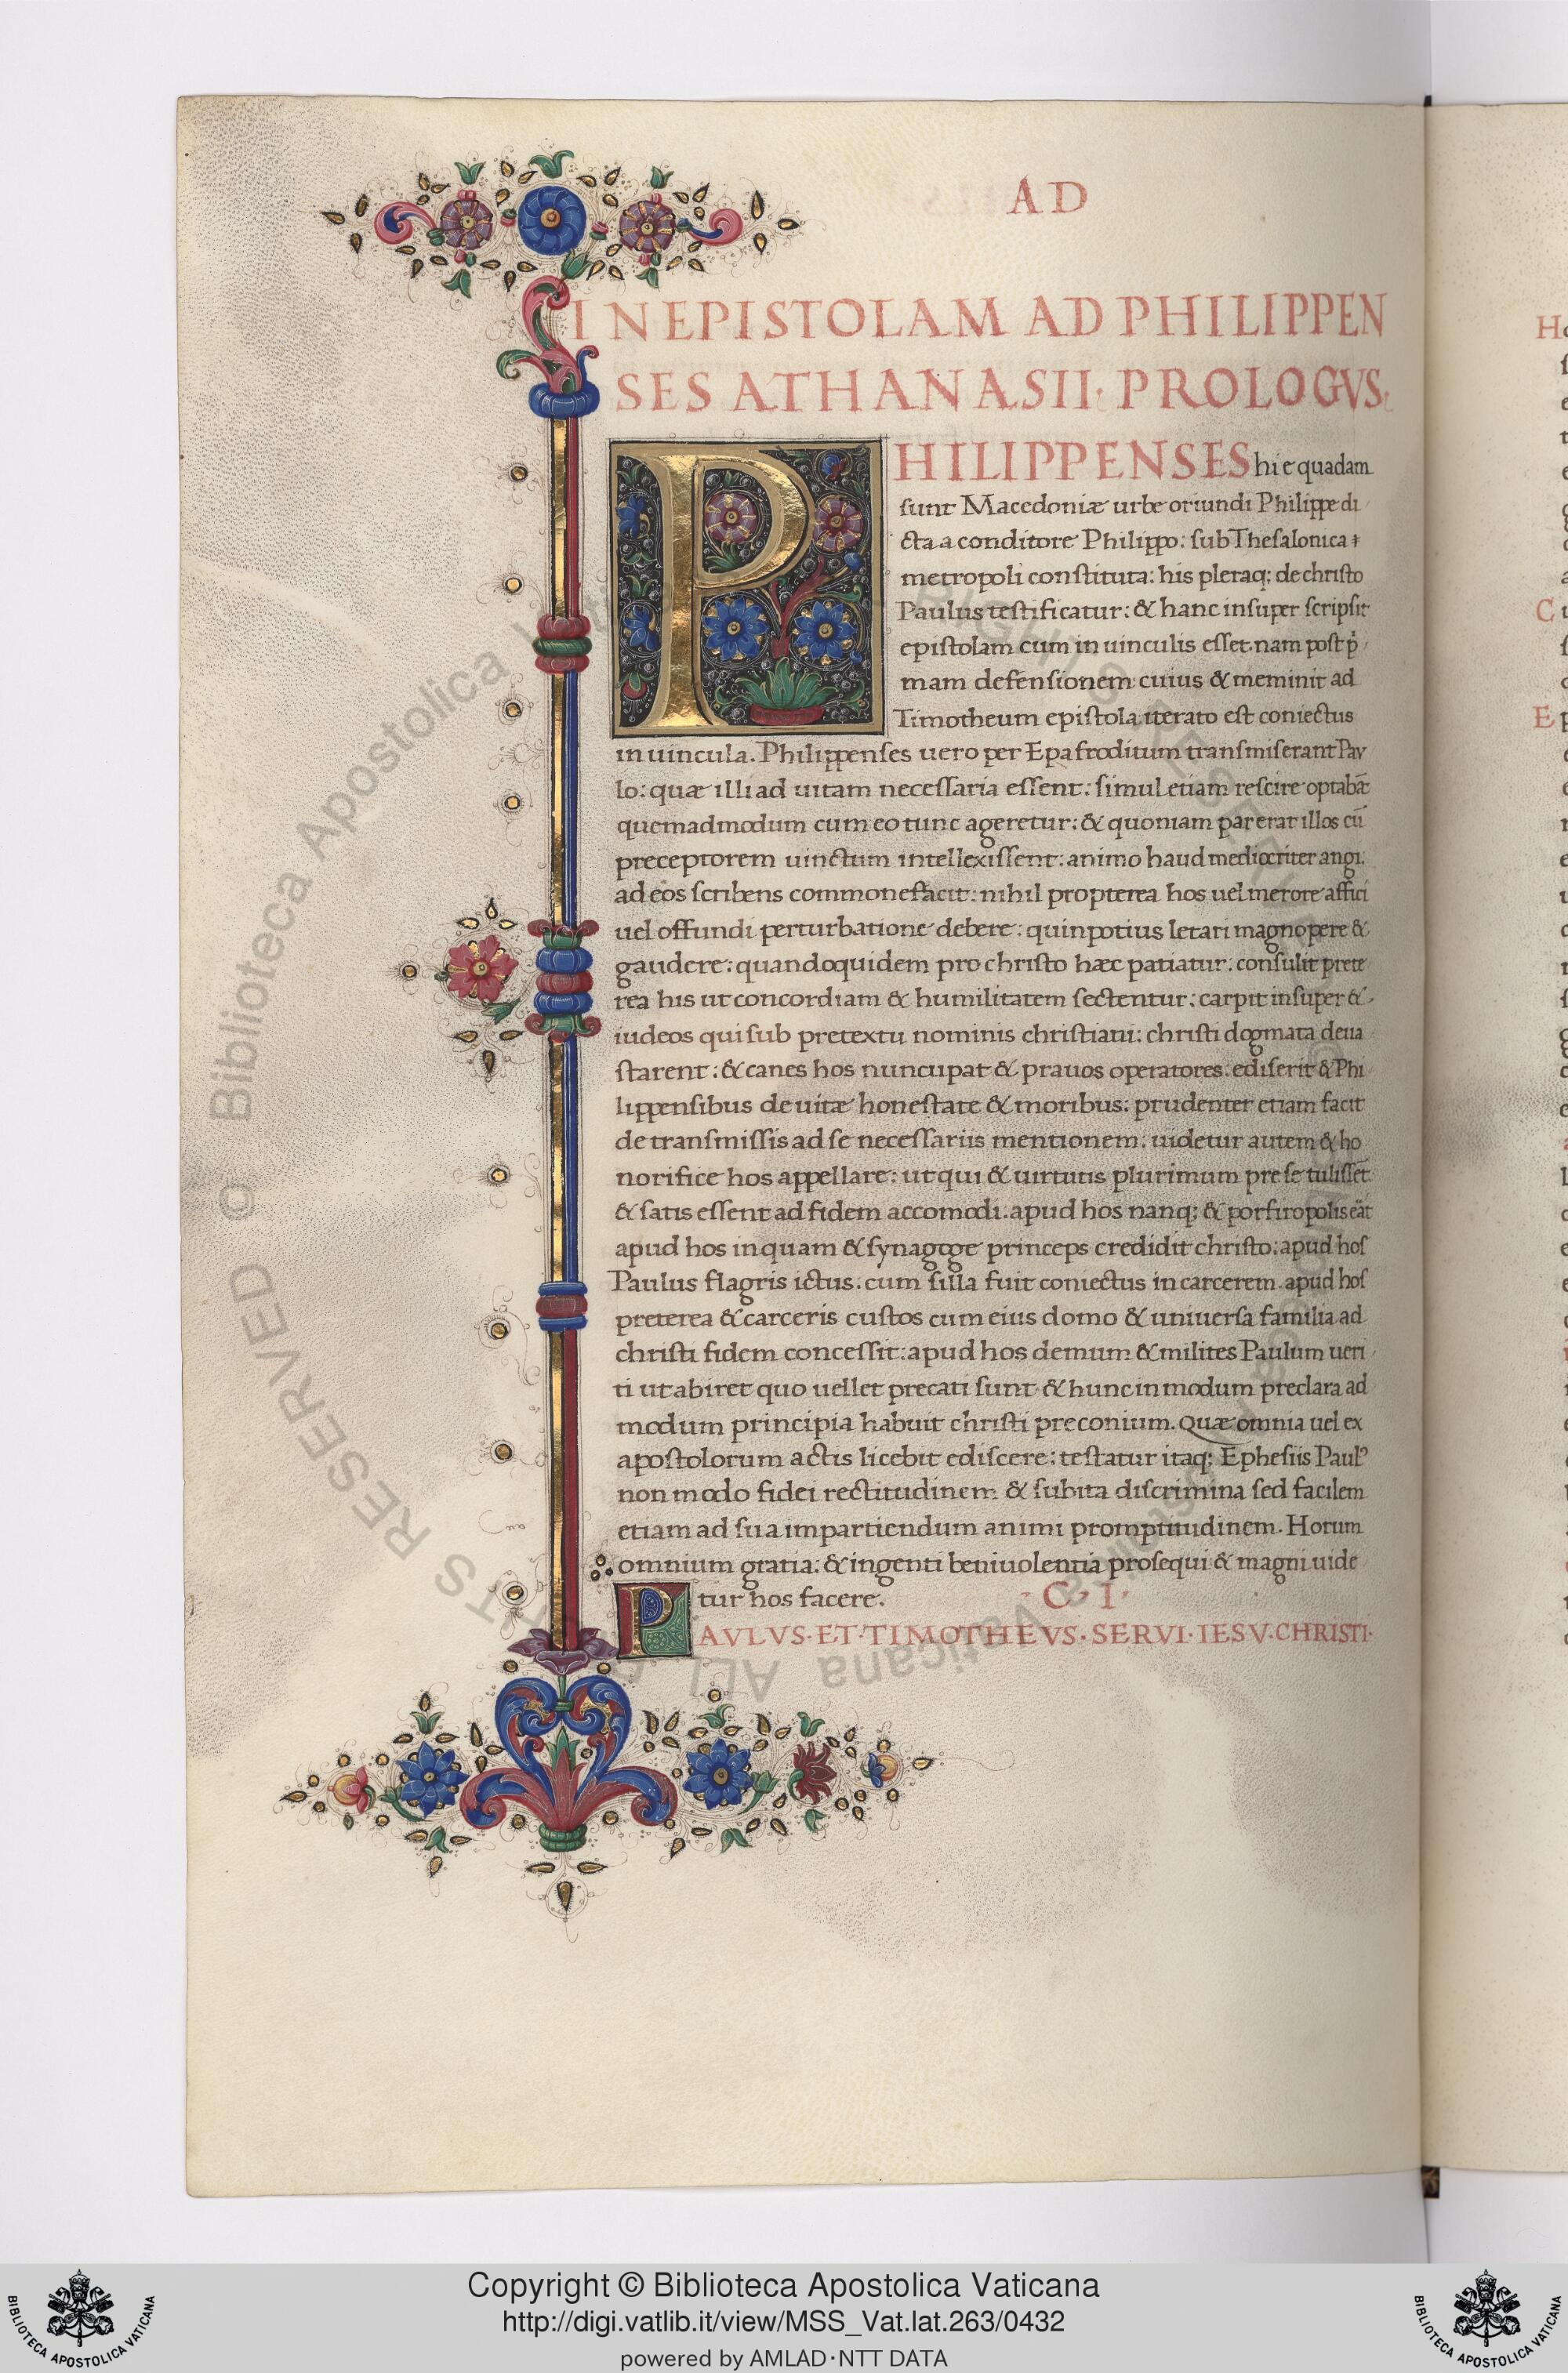 AD
IN EPISTOLAM AD PHILIPPEN
SES ATHANASII· PROLOGVS·
PHILIPPENSES hi e quadam
sunt Macedoniæ urbe oriundi Philippe di
cta a conditore Philippo: sub Thesalonica
metropoli constituta: his pleraq; de christo
Paulus testificatur: & hanc insuper scripsit
epistolam cum in uinculis esset. nam post p̄
mam defensionem cuius & meminit ad
Timotheum epistola iterato est coniectus
in uincula. Philippenses uero per Epafroditum transmiserant Pau
lo: quæ illi ad uitam necessaria essent: simul etiam rescire optabāt
quemadmodum cum eo tunc ageretur: & quoniam par erat illos cū
preceptorem uinctum intellexissent: animo haud mediocriter angi.
ad eos scribens commonefacit: nihil propterea hos uel merore affici
uel offundi perturbatione debere: quin potius letari magnopere &
gaudere: quandoquidem pro christo hæc patiatur: consulit prete
rea his ut concordiam & humilitatem sectentur: carpit insuper &
iudeos qui sub pretextu nominis christiani: christi dogmata deua
starent: & canes hos nuncupat & prauos operatores. ediserit & Phi
lippensibus de uitæ honestate & moribus: prudenter etiam facit
de transmissis ad se necessariis mentionem: uidetur autem & ho
norifice hos appellare: ut qui & uirtutis plurimum pre se tulissēt
& satis essent ad fidem accomodi. apud hos nanq; & porfiropolis eāt
apud hos inquam & synagoge princeps credidit christo: apud hos
Paulus flagris ictus. cum silla fuit coniectus in carcerem. apud hos
preterea & carceris custos cum eius domo & uniuersa familia ad
christi fidem concessit: apud hos demum & milites Paulum ueri
ti ut abiret quo uellet precati sunt & hunc in modum preclara ad
modum principia habuit christi preconium. Quæ omnia uel ex
apostolorum actis licebit ediscere: testatur itaq; Ephesiis Paulꝰ
non modo fidei rectitudinem & subita discrimina sed facilem
etiam ad sua impartiendum animi promptitudinem. Horum
omnium gratia: & ingenti beniuolentia prosequi & magni uide
tur hos facere. · C · I ·
PAVLVS·ET·TIMOTHEVS·SERVI·IESV·CHRISTI·
H
C
E
© Biblioteca Apostolica Vaticana ALL RIGHTS RESERVED
Copyright © Biblioteca Apostolica Vaticana
http://digi.vatlib.it/view/MSS_Vat.lat.263/0432
powered by AMLAD·NTT DATA
BIBLIOTECA APOSTOLICA VATICANA
BIBLIOTECA APOSTOLICA VATICANA